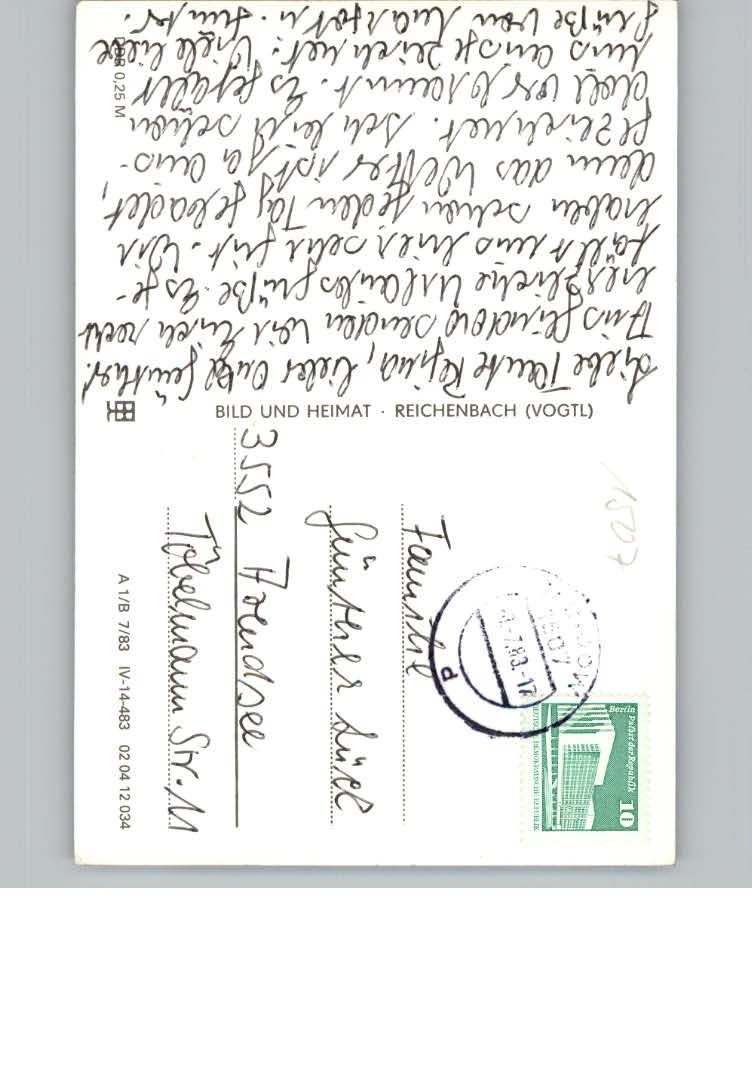 Liebe Tante Regina, lieber Onkel Günther!
Aus Glindow senden wir Euch recht
herzliche Urlaubsgrüße. Es ge-
fällt uns hier sehr gut. Wir
haben schon jeden Tag gebadet,
denn das Wetter ist ja aus-
gezeichnet. Ich bin schon
doll verbrannt. Es gefällt
uns ausgezeichnet. Viele liebe
Grüße von
BILD UND HEIMAT · REICHENBACH (VOGTL)
Familie
Günther
3552 Arendsee
Töbelmann Str. 11
1507
1507
-7.83.-17
d
Berlin
Palast der Republik
10
DEUTSCHE DEMOKRATISCHE REPUBLIK
A 1/B 7/83 IV-14-483 02 04 12 034
DDR 0,25 M